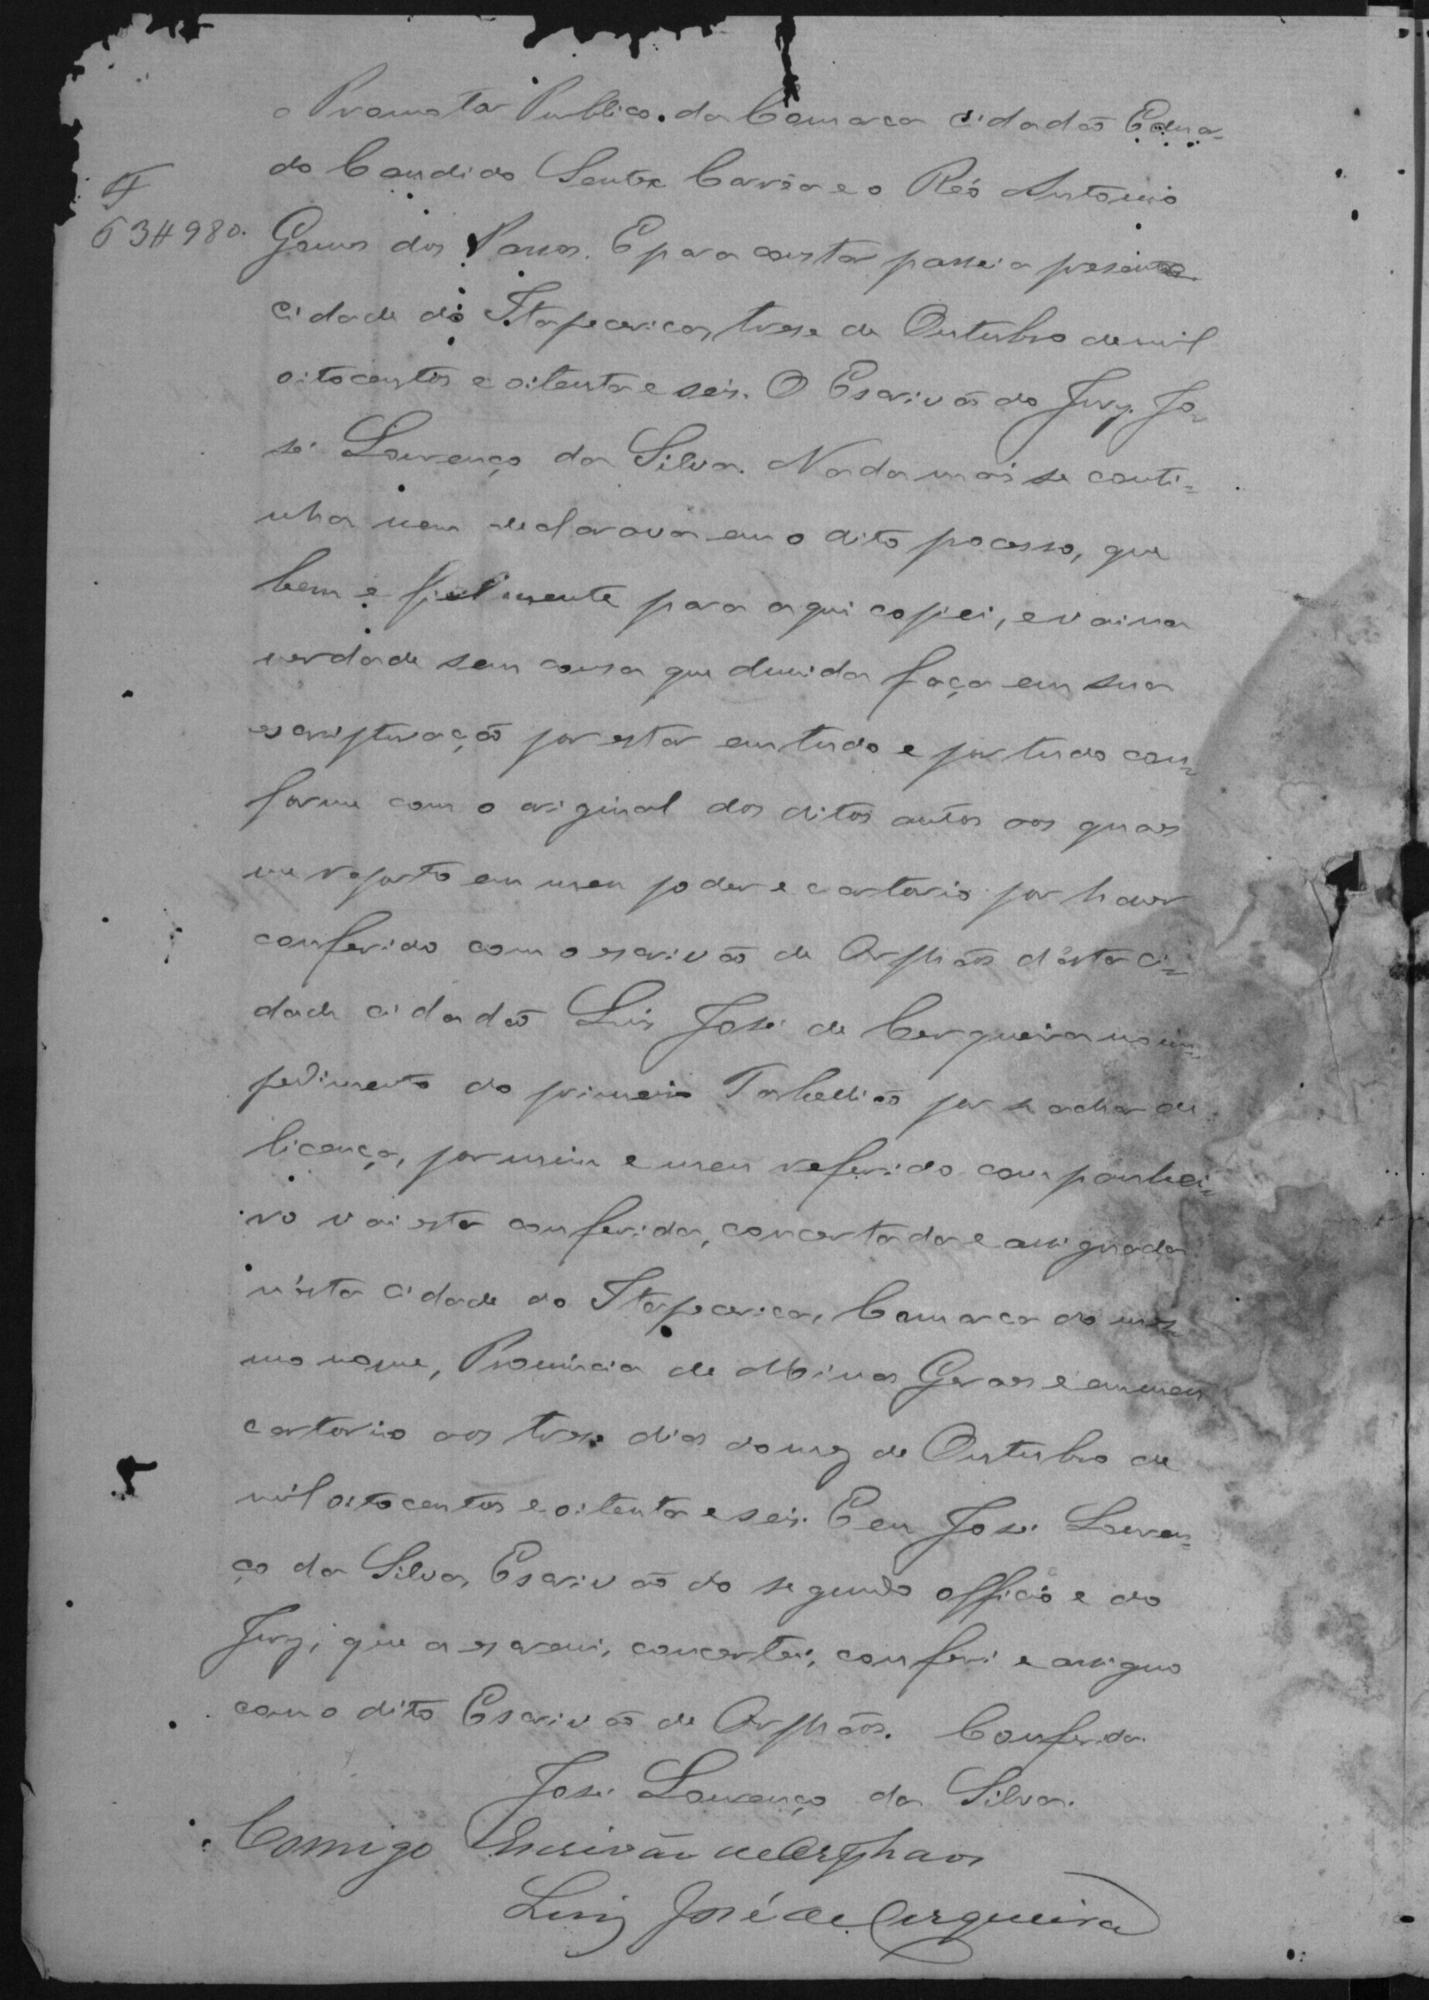 o Promotor Publico da Comarca cidadão Edua-
do Candido Correa e o Réo Antonio
F
634980.
Gomes dos Passos. E para constar passei a presente
cidade do Itapecerica, trese de Outubro de mil
oitocentos e oitenta e seis. O Escrivão do Jury. Jo-
sé Lourenço da Silva. Nada mais se conti=
nha nem declarava em o dito pocesso, que
bem e fielmente para aqui copiei, e vai na
verdade sem cousa que duvida faça em sua
escripturação por estar em tudo e por tudo con=
forme com o original dos ditos autos aos quaes
me reporto em meu poder e cartorio por haver
conferido com o escrivão de Orphãos d'esta ci=
dade cidadão Luis José de Cerqueira no im=
pedimento do primeiro Tabellião por se achar de
licença, por mim e meu referido companhei=
ro vai esta conferida, concertada e assignada
n'esta cidade do Itapecerica, Comarca do mes=
mo nome, Provincia de Minas Geraes e em meu
cartorio aos trese dias do mez de Outubro de
mil oitocentos e oitenta e seis. E eu José Louren=
ço da Silva, Escrivão do segundo officio e do
Jury, que a escrevi, concertei, conferi e assigno
com o dito Escrivão de Orphãos. Conferida.
José Lourenço da Silva.
Comigo Escrivão de Orphaos
Luiz José de Cerqueira